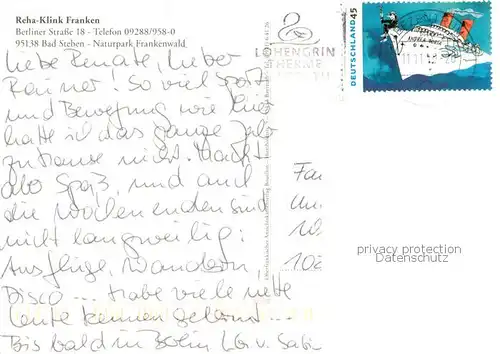 Reha-Klink Franken
Berliner Straße 18 - Telefon 09288/958-0
95138 Bad Steben - Naturpark Frankenwald
Liebe Renate, lieber
Rainer! So viel Sport
und Bewegung wie hier
hatte ich das ganze Jahr
zuhause nicht. Macht
aber Spaß, und auch
die Wochenenden sind
nicht langweilig:
Ausflüge, Wandern
Disco ... Habe viele nette
Leute kennen gelernt...
Bis bald in Berlin LG v.
LOHENGRIN
THERME
DEUTSCHLAND 45
Fa
102
privacy protection
Datenschutz